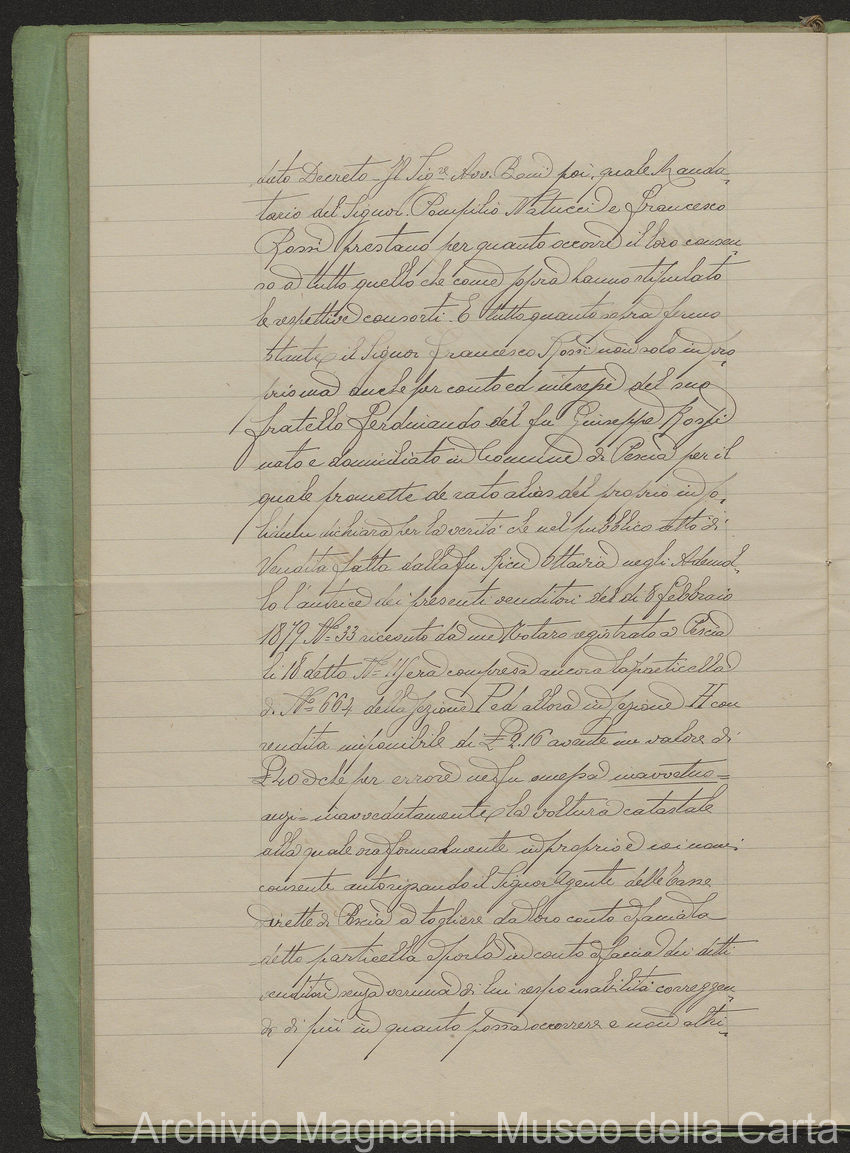 dito Decreto - Il Sig.re Avv. Boni poi, quale Manda-
tario del Signor Pompilio Natucci e Francesco
Rossi prestano per quanto occorre il loro consen-
so a tutto quello che come sopra hanno stipulato
le respettive consorti. E tutto quanto sopra fermo
stante il Signor Francesco Rossi non solo in pro-
prio ma anche per conto ed interesse del suo
fratello Ferdinando del fu Giuseppe Rossi
nato e domiciliato in Comune di Pescia per il
quale promette de rato alias del proprio in so-
lidum dichiara per la verità che nel pubblico atto di
Vendita fatto dalla fu Ottavia negli Ademol-
lo l'autrice dei presenti venditori del dì 8 febbraio
1879 N.º 33 ricevuto da me Notaro registrato a Pescia
li 18 detto N.º era compresa ancora la particella
di N.º 664 della Sezione P ed allora in Sezione H con
rendita imponibile di £ 2.16 avente un valore di
£ 40 e che per errore ne fu omessa inavvertuo=
anzi= inavvedutamente la voltura catastale
alla quale ora formalmente in proprio e nei nomi
consente autorizzando il Signor Agente delle Tasse
dirette di Pescia a togliere da loro conto e faccia la
detta particella e porla in conto e faccia dei detti
venditori senza veruna di lui responsabilità correggen-
do di più in quanto possa occorrere e non altri-
Archivio Magnani - Museo della Carta